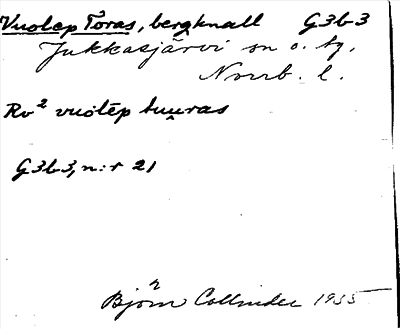 Vuolep Toras, bergknall G3b3
Jukkasjärvi sn o. tg.
Norrb. l.
Rv² vuolēp tuuras
G3b3, n:r 21
Björn Collinder 1935